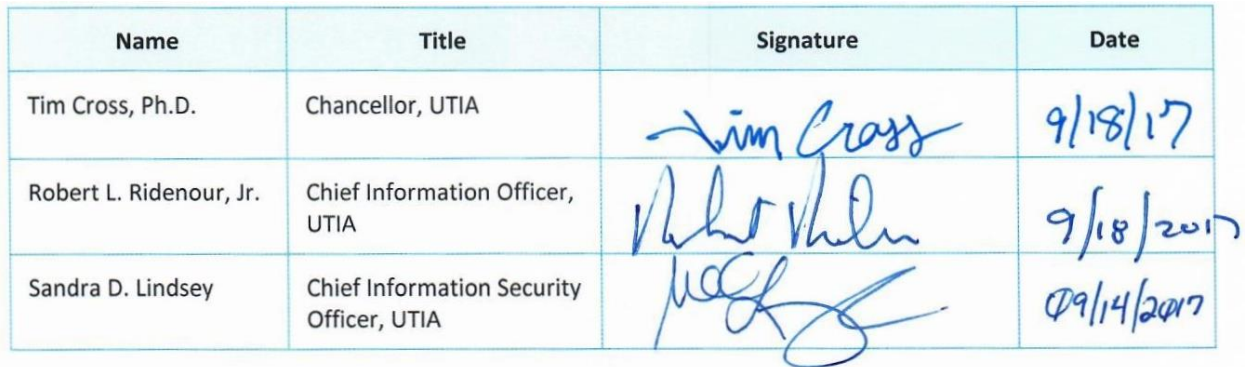 Name Title Signature Date
Tim Cross, Ph.D. Chancellor, UTIA Tim Cross 9/18/17
Robert L. Ridenour, Jr. Chief Information Officer, UTIA 9/18/2017
Sandra D. Lindsey Chief Information Security Officer, UTIA 09/14/2017